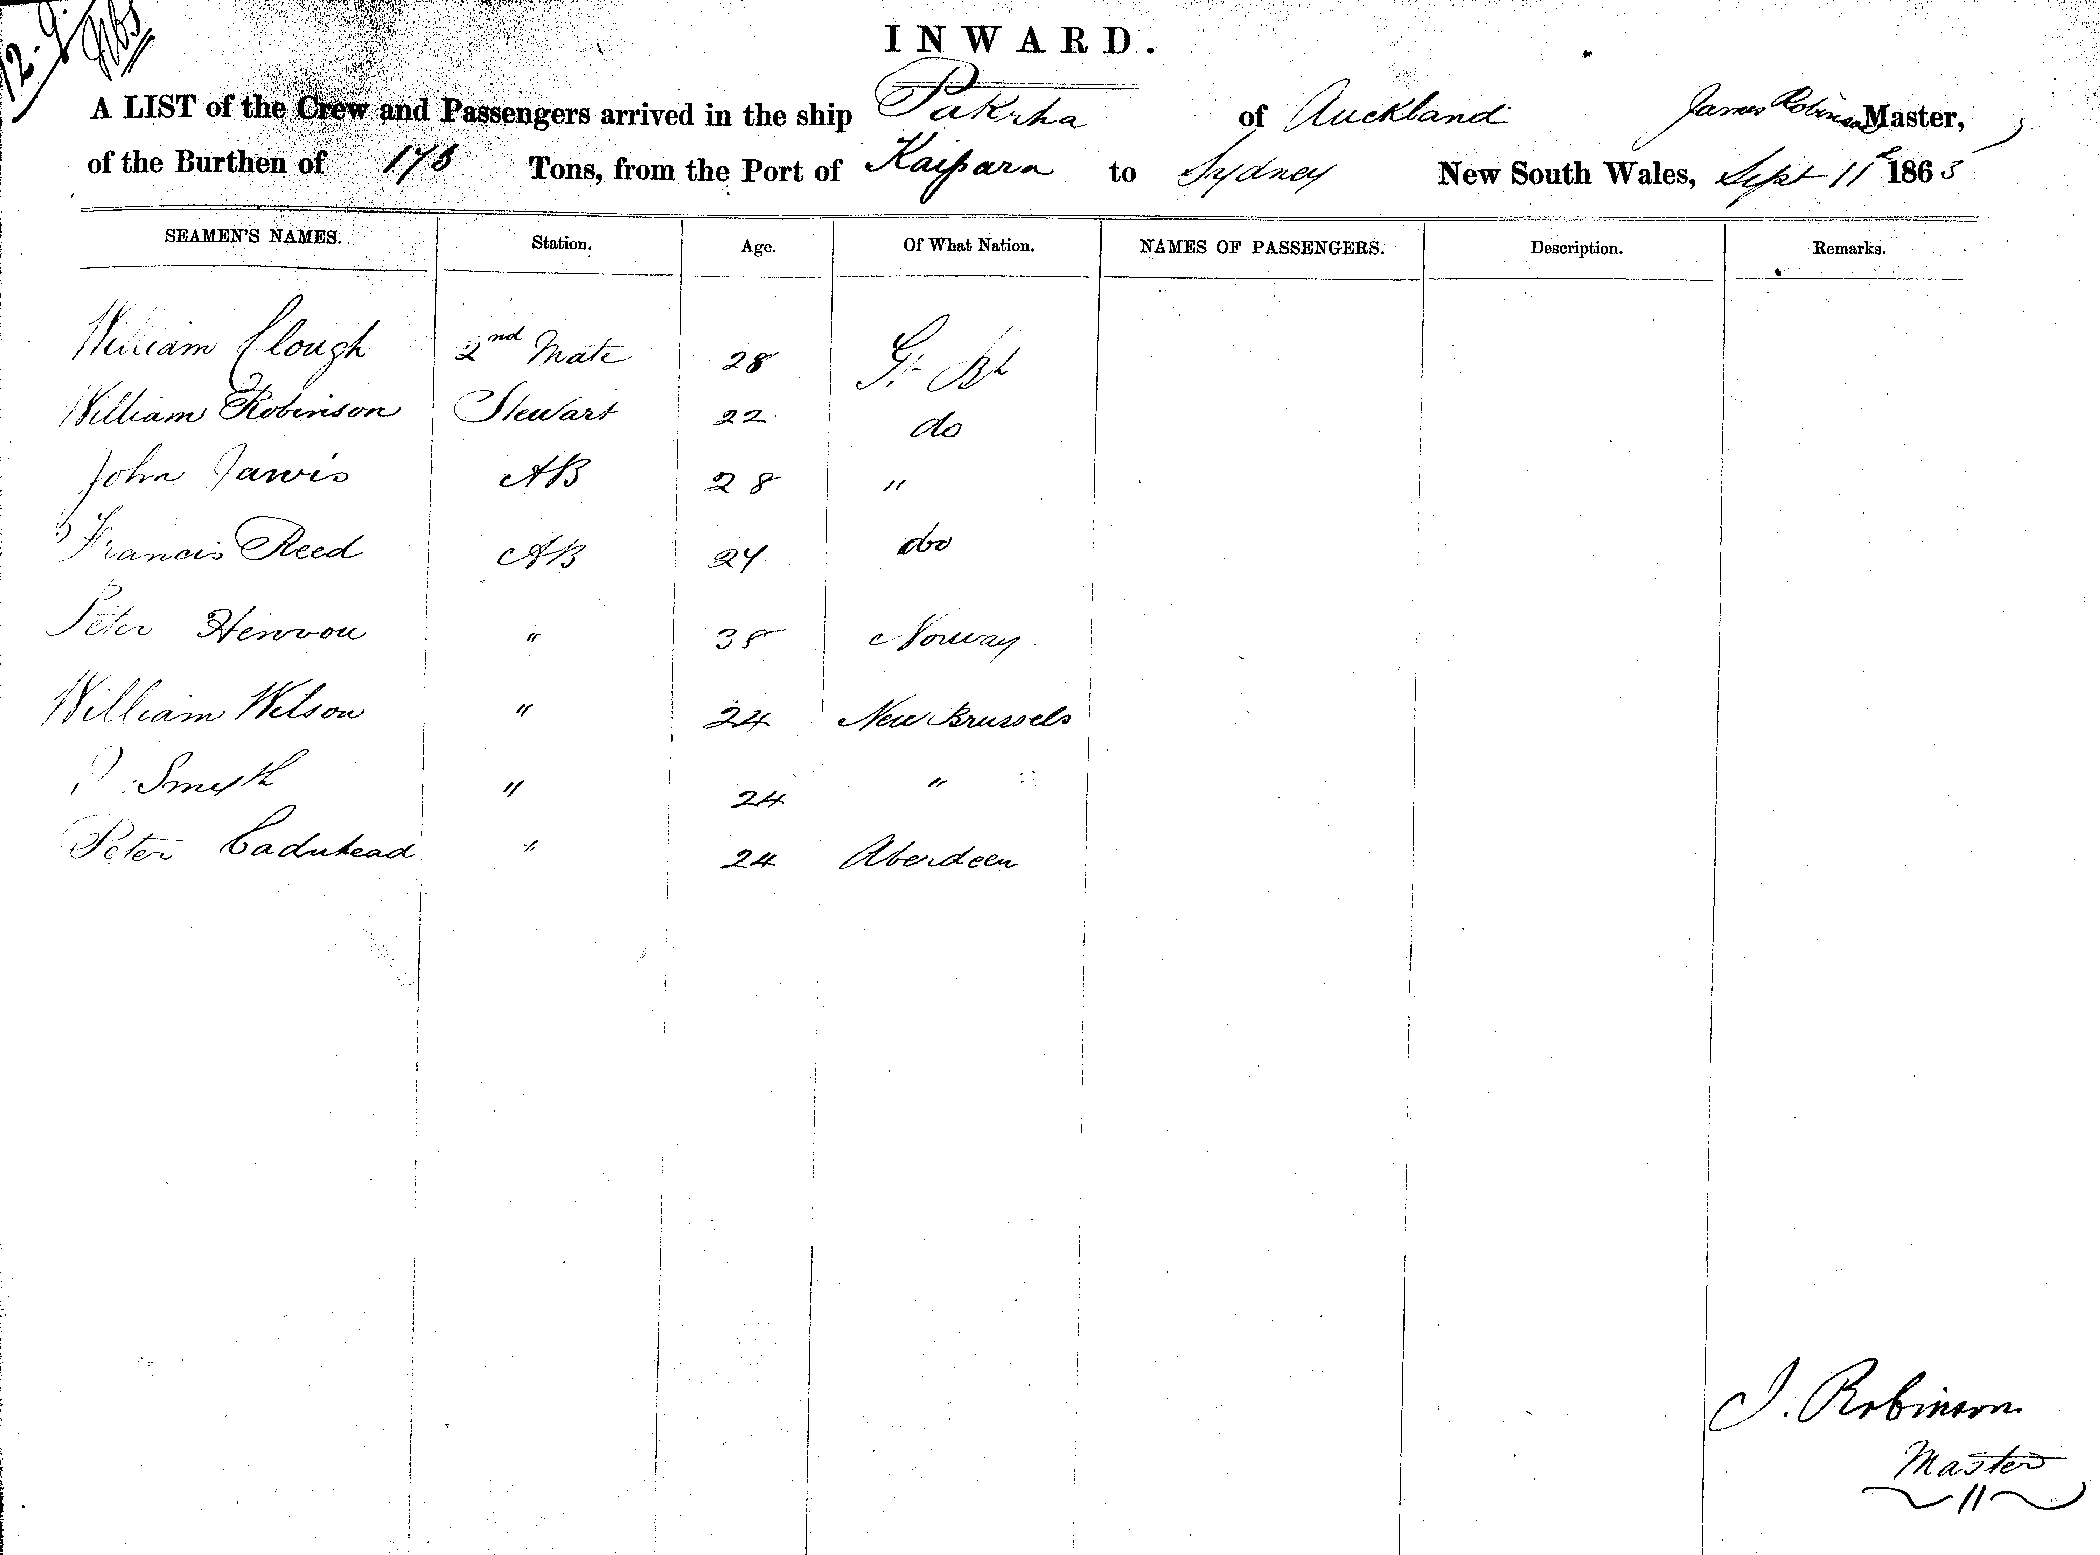 12-9.
INWARD.
A LIST of the Crew and Passengers arrived in the ship Pakeha of Auckland James Robinson Master,
of the Burthen of 175 Tons, from the Port of Kaipara to Sydney New South Wales, Sept 11th 1863
SEAMEN'S NAMES. Station. Age. Of What Nation. NAMES OF PASSENGERS. Description. Remarks.
William Clough 2nd Mate 28 Gt Bt
William Robinson Stewart 22 do
John Jarvis AB 28 "
Francis Reed AB 24 do
Peter " 38 Norway
William Wilson " 24 New Brussels
Smyth " 24 "
Peter Caduhead " 24 Aberdeen
J. Robinson
Master